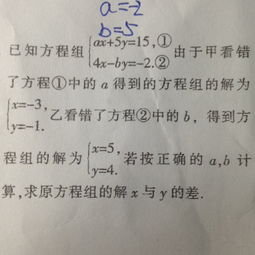 a=-2
b=5
已知方程组{ax+5y=15,①
4x-by=-2.②
由于甲看错
了方程①中的a得到的方程组的解为
{x=-3,
y=-1.
乙看错了方程②中的b，得到方
程组的解为{x=5,
y=4.
若按正确的a,b计
算,求原方程组的解x与y的差.